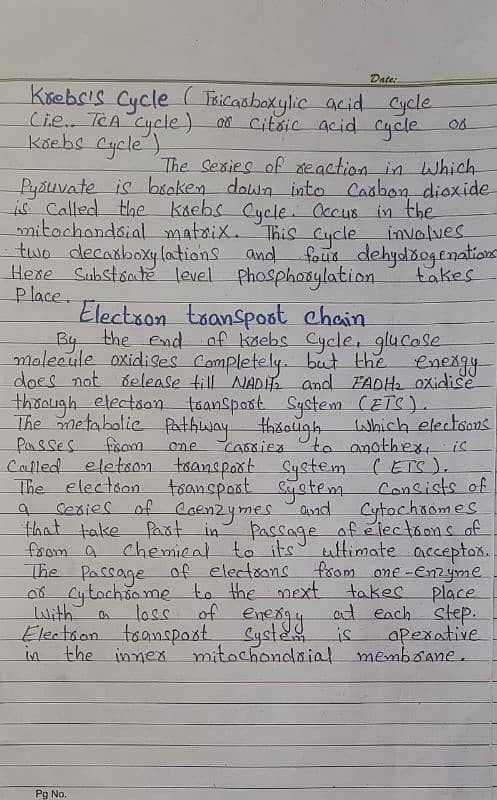 Date:
Krebs's Cycle ( Tricarboxylic acid cycle
(i.e.. TCA Cycle) or Citric acid cycle or
Krebs cycle )
The series of reaction in which
Pyruvate is broken down into Carbon dioxide
is called the krebs Cycle. Occur in the
mitochondrial matrix. This cycle involves
two decarboxylations and four dehydrogenations
Here Substrate level Phosphorylation takes
Place.
Electron transport chain
By the end of krebs Cycle, glucose
molecule oxidises Completely. but the energy
does not release till NADH2 and FADH2 oxidise
through electron transport System (ETS).
The metabolic Pathway through which electrons
Passes from one carrier to another, is
Called eletron transport System (ETS).
The electron transport System Consists of
a series of Coenzymes and Cytochromes
that take Part in Passage of electrons of
from a Chemical to its ultimate acceptor.
The Passage of electrons from one-Enzyme
or Cytochrome to the next takes Place
With a loss of energy at each step.
Electron transport System is operative
in the inner mitochondrial membrane.
Pg No.